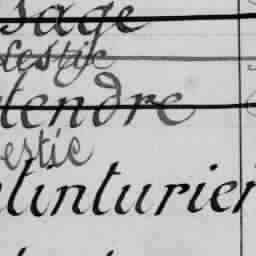 sage
estije
tendre
estie
tinturier